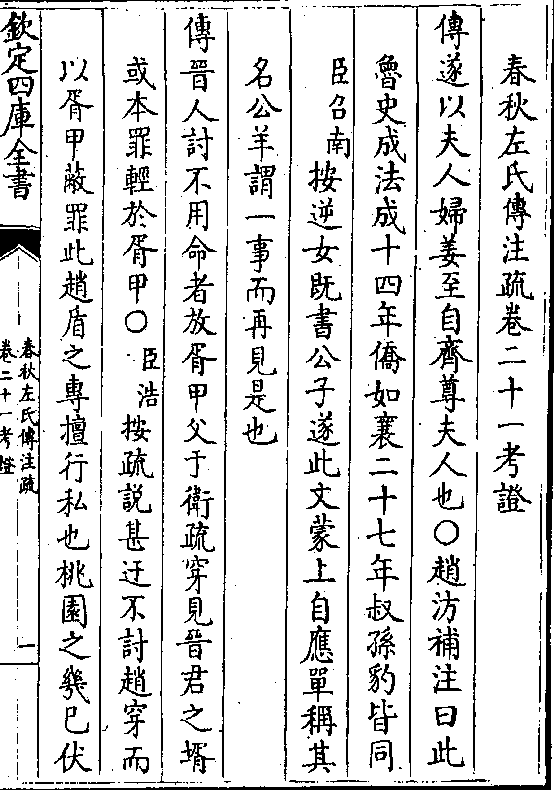 春秋左氏傳注疏卷二十一考證
傳遂以夫人婦姜至自齊尊夫人也○趙汸補注曰此
魯史成法成十四年僑如襄二十七年叔孫豹皆同
臣召南按逆女既書公子遂此文蒙上自應單稱其
名公羊謂一事而再見是也
傳晉人討不用命者放胥甲父于衛疏穿見晉君之壻
或本罪輕於胥甲○臣浩按疏說甚迂不討趙穿而
以胥甲蔽罪此趙盾之專擅行私也桃園之幾已伏
欽定四庫全書
春秋左氏傳注疏
卷二十一考證
一